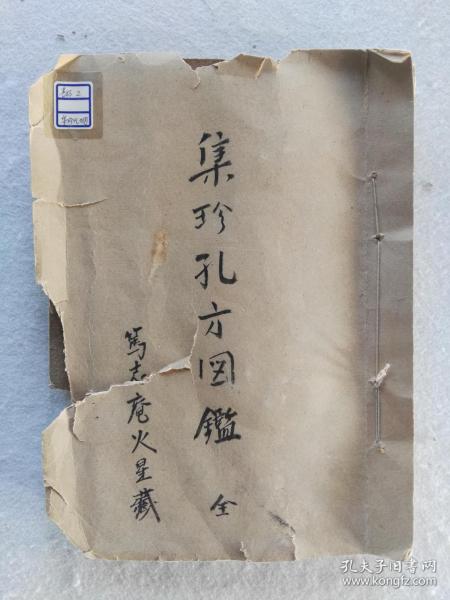 集珍孔方図鑑 全
篤志庵火星藏
孔夫子旧书网
www.kongfz.com